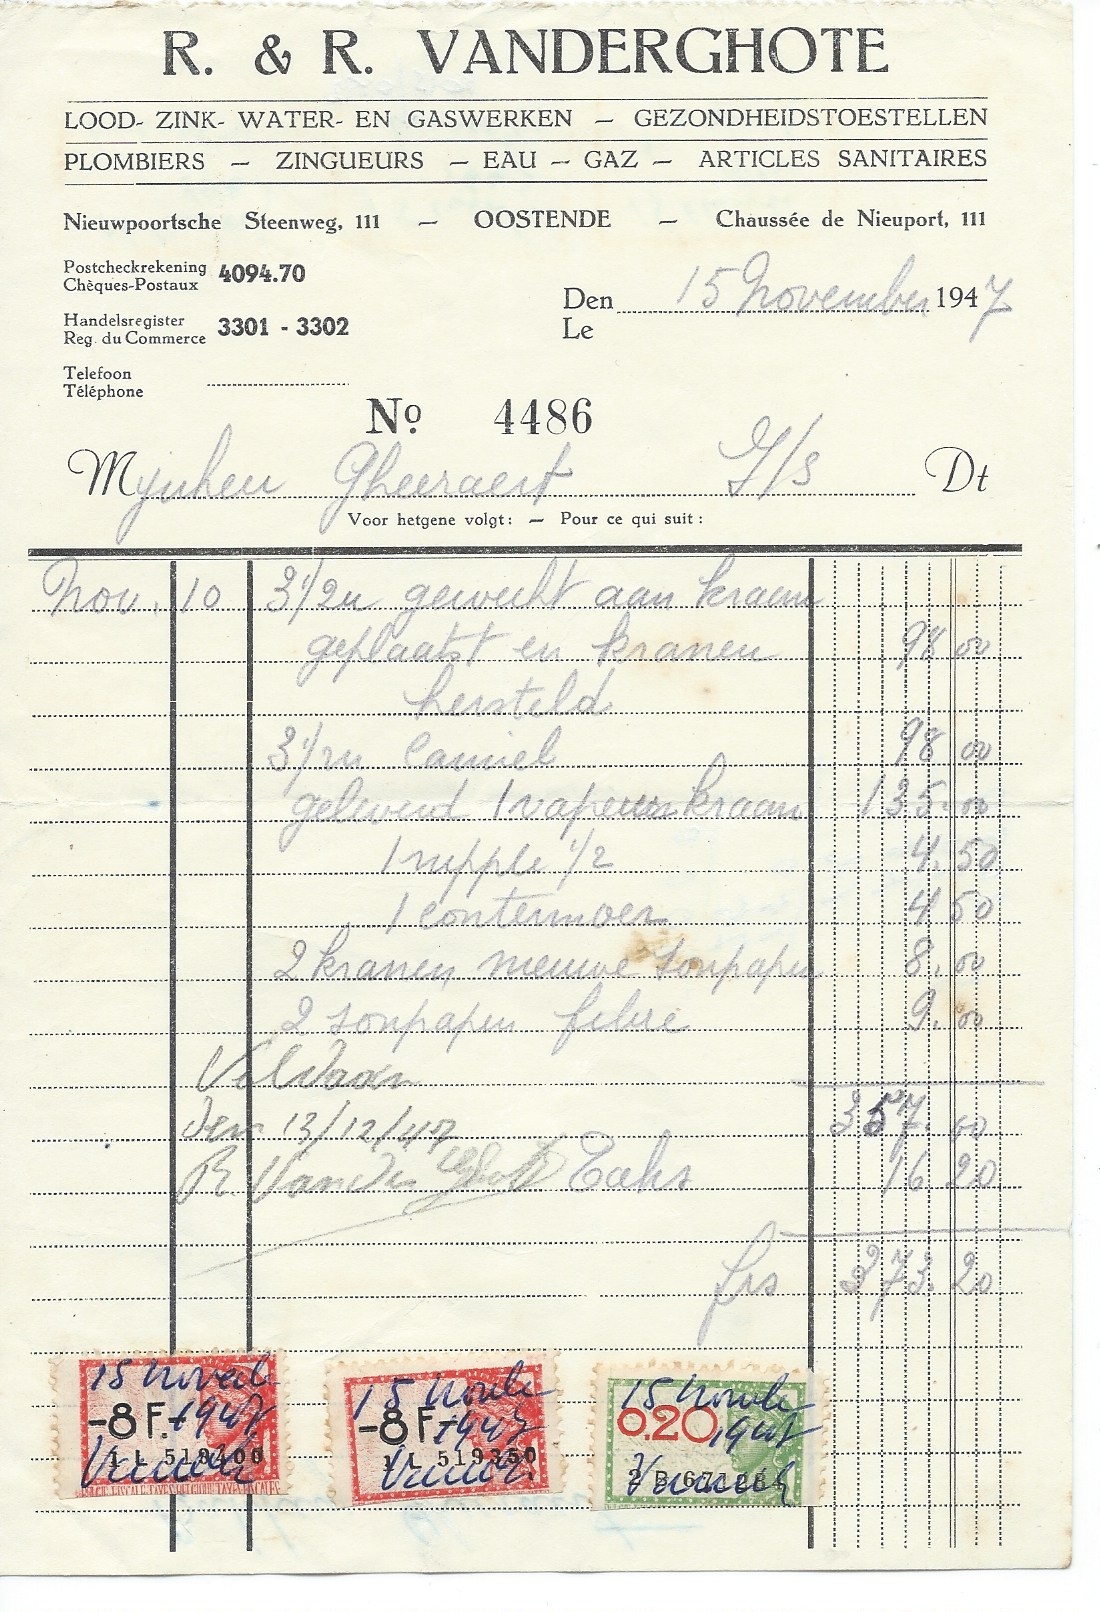 R. & R. VANDERGHOTE
LOOD- ZINK- WATER- EN GASWERKEN — GEZONDHEIDSTOESTELLEN
PLOMBIERS — ZINGUEURS — EAU — GAZ — ARTICLES SANITAIRES
Nieuwpoortsche Steenweg, 111 — OOSTENDE — Chaussée de Nieuport, 111
Postcheckrekening
Chèques-Postaux 4094.70
Den 15 November 1947
Le
Handelsregister
Reg. du Commerce 3301 - 3302
Telefoon
Téléphone
No. 4486
Mynheer Gheeraert Dt
Voor hetgene volgt: — Pour ce qui suit:
Nov. 10 3 1/2 u gewerkt aan kraan
geplaatst en kranen 98 00
hersteld
3 1/2 u 98 00
geleverd 1 kraan 135.00
1 nipple 1/2 4.50
1 contermoer 4 50
2 kranen nieuwe soupapen 8.00
2 soupapen fibre 9.00
Voldaan
den 13/12/47 357.00
R Vanderghote Taks 16 20
frs 373.20
15 Novemb
-8 F.- 1947
1 L 519400
15 Novb
-8 F- 1947
1 L 519350
15 Novb
0.20 1947
2 B